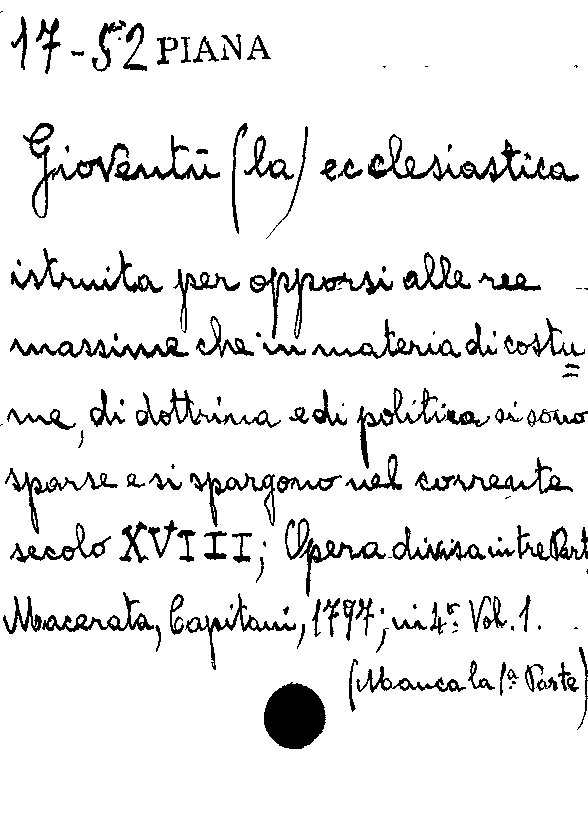 17-5-2 PIANA
Gioventù (la) ecclesiastica
istruita per opporsi alle ree
massime che in materia di costu=
me, di dottrina e di politica si sono
sparse e si spargono nel corrente
secolo XVIII; Opera divisa in tre Part
Macerata, Capitani, 1797; in 4°. Vol. 1.
(Manca la 1a Parte)